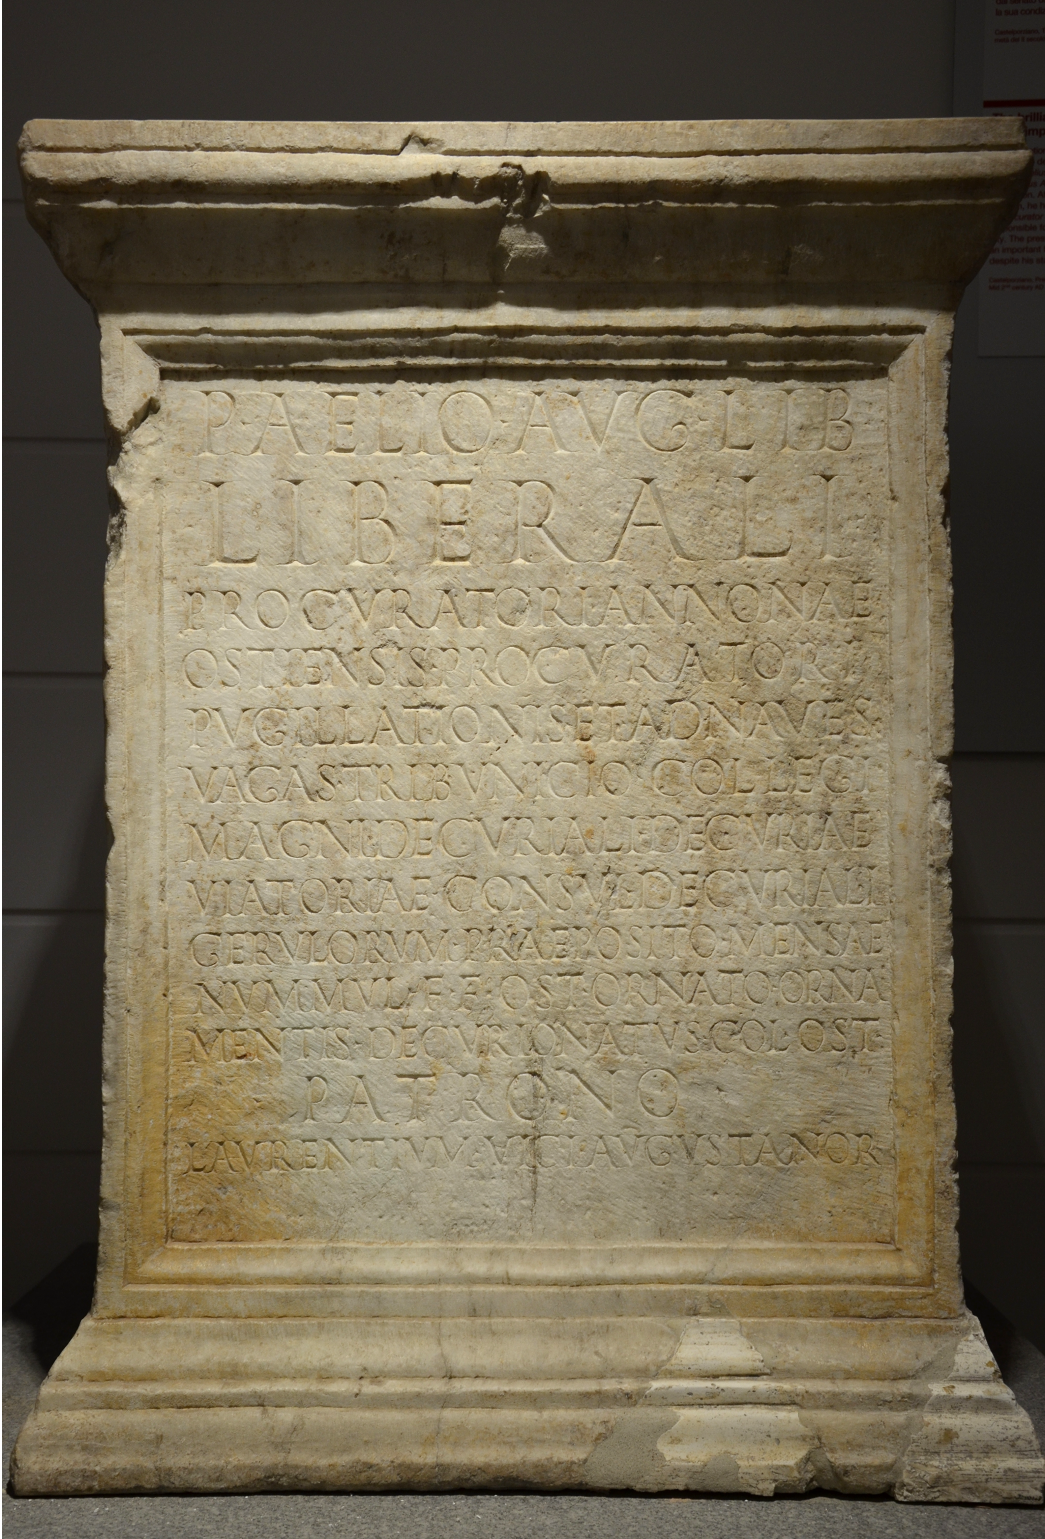 P·AELIO·AVG·LIB
LIBERALI
PROCVRATORI·ANNONAE
OSTIENSIS·PROCVRATORI
PVGILLATIONIS·ET·AD·NAVES
VAGAS·TRIBVNICIO·COLLEGI
MAGNI·DECVRIALI·DECVRIAE
VIATORIAE·CONSVL·DECVRIALI
GERVLORVM·PRAEPOSITO·MENSAE
NVMMVL·F·E·OST·ORNATO·ORNA
MENTIS·DECVRIONATVS·COL·OST·
PATRONO
LAVRENTIVM·VICI·AVGVSTANOR
la sua
despite his